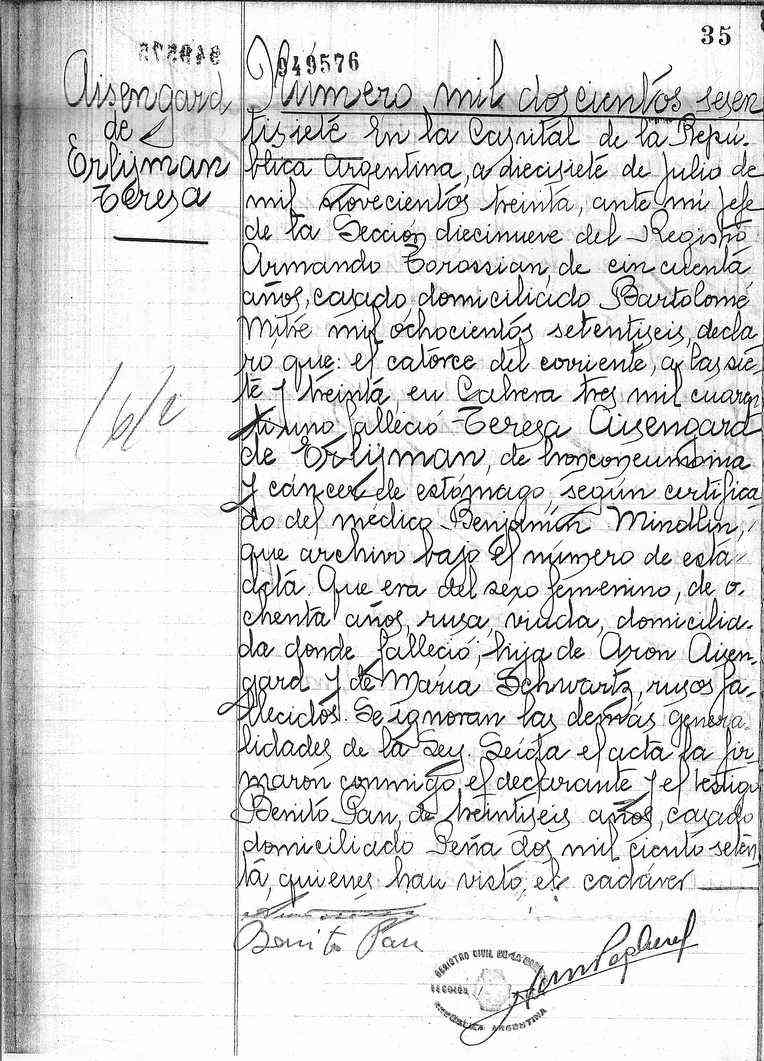 35
949576
Aisengard
de
Erlijman
Teresa
Número mil doscientos sesen
tisiete En la Capital de la Repú-
blica Argentina, a diecisiete de Julio de
mil novecientos treinta, ante mi Jefe
de la Sección diecinueve del Registro
Armando Torossian, de cincuenta
años, casado domiciliado Bartolomé
Mitre mil ochocientos setentiseis, decla
ró que: el catorce del corriente, a las sie
te y treinta en Cabrera tres mil cuaren
tiuno falleció Teresa Aisengard
de Erlijman, de bronconeumonia
y cáncer de estómago, según certifica
do del médico Benjamín Mindlin,
que archivo bajo el número de esta
acta. Que era del sexo femenino, de o-
chenta años, rusa, viuda, domicilia-
da donde falleció; hija de Aron Aisen-
gard y de María Schwartz, rusos fa-
llecidos. Se ignoran las demás genera-
lidades de la Ley. Leida el acta la fir
maron conmigo el declarante y el testigo
Benito Pan, de treintiseis años, casado
domiciliado Peña dos mil ciento seten
ta, quienes han visto el cadáver
Benito Pan
REGISTRO CIVIL DE LA
SECCION
REPUBLICA ARGENTINA